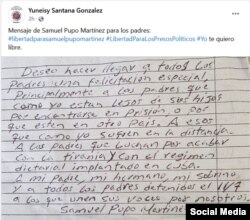 Yuneisy Santana Gonzalez
Mensaje de Samuel Pupo Martínez para los padres:
#libertadparasamuelpupomartinez #LibertadParaLosPresosPolíticos #Yo te quiero
libre.
Deseo hacer llegar a todos los
Padres una felicitación especial,
Principalmente a los padres que
como yo están lejos de sus hijos
por encontrarse en prisión o por
que estén en otro País. A esos
que como yo sufren en la distancia.
A los padres que luchan por acabar
con la tiranía y con el régimen
dictatorial implantado en Cuba.
A mi Padre, mi hermano, mi sobrino
y a todos los padres detenidos el 11J
a los que unen sus voces por nosotros.
Samuel Pupo Martínez
Social Media